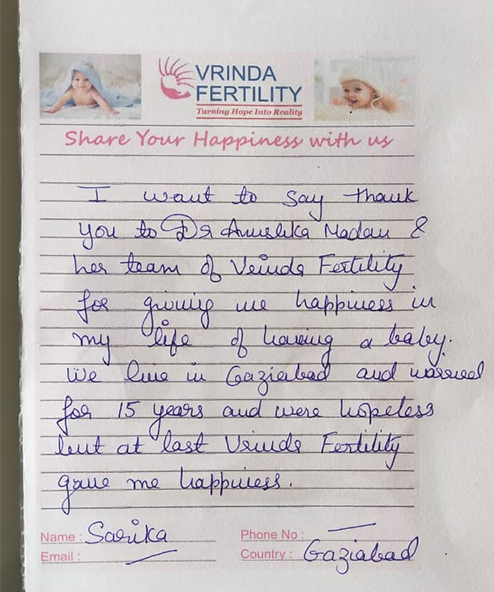 VRINDA
FERTILITY
Turning Hope Into Reality
Share Your Happiness with us
I want to say thank
you to Dr Anushka Madan &
her team of Vrinda Fertility
for giving me happiness in
my life of having a baby.
We live in Gaziabad and married
for 15 years and were hopeless
but at last Vrinda Fertility
gave me happiness.
Name : Sarika Phone No : —
Email : — Country : Gaziabad